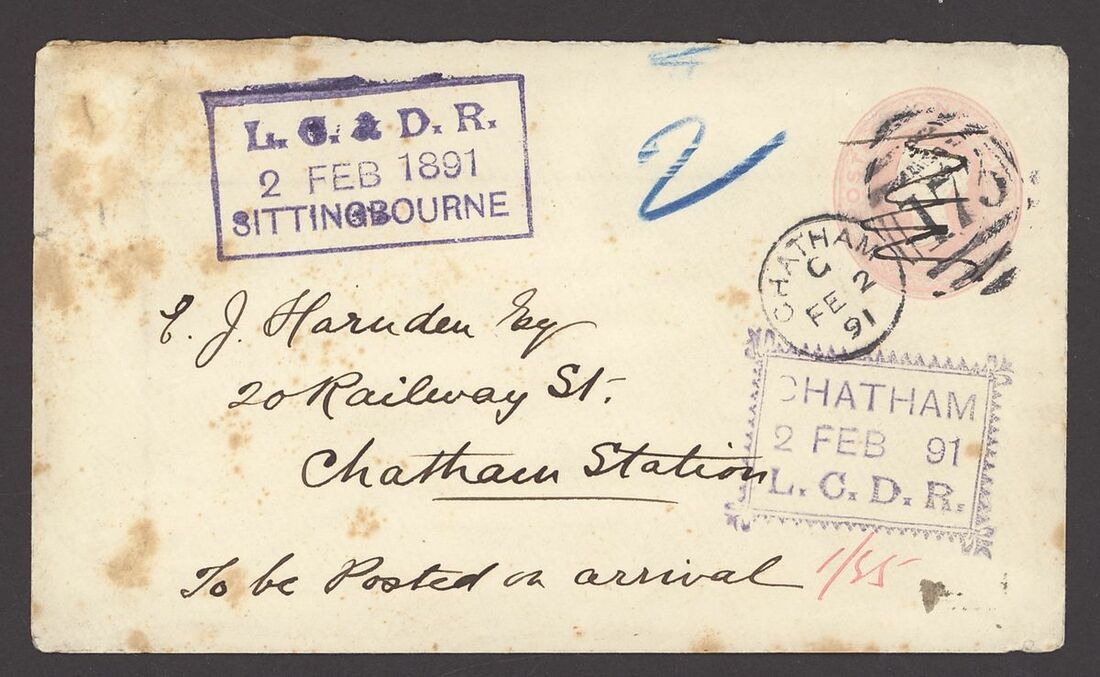 L. C. & D. R.
2 FEB 1891
SITTINGBOURNE
2
173
CHATHAM
C
FE 2
91
E. J. Harnden Esq
20 Railway St.
Chatham Station
CHATHAM
2 FEB 91
L. C. D. R.
To be Posted on arrival
1/55